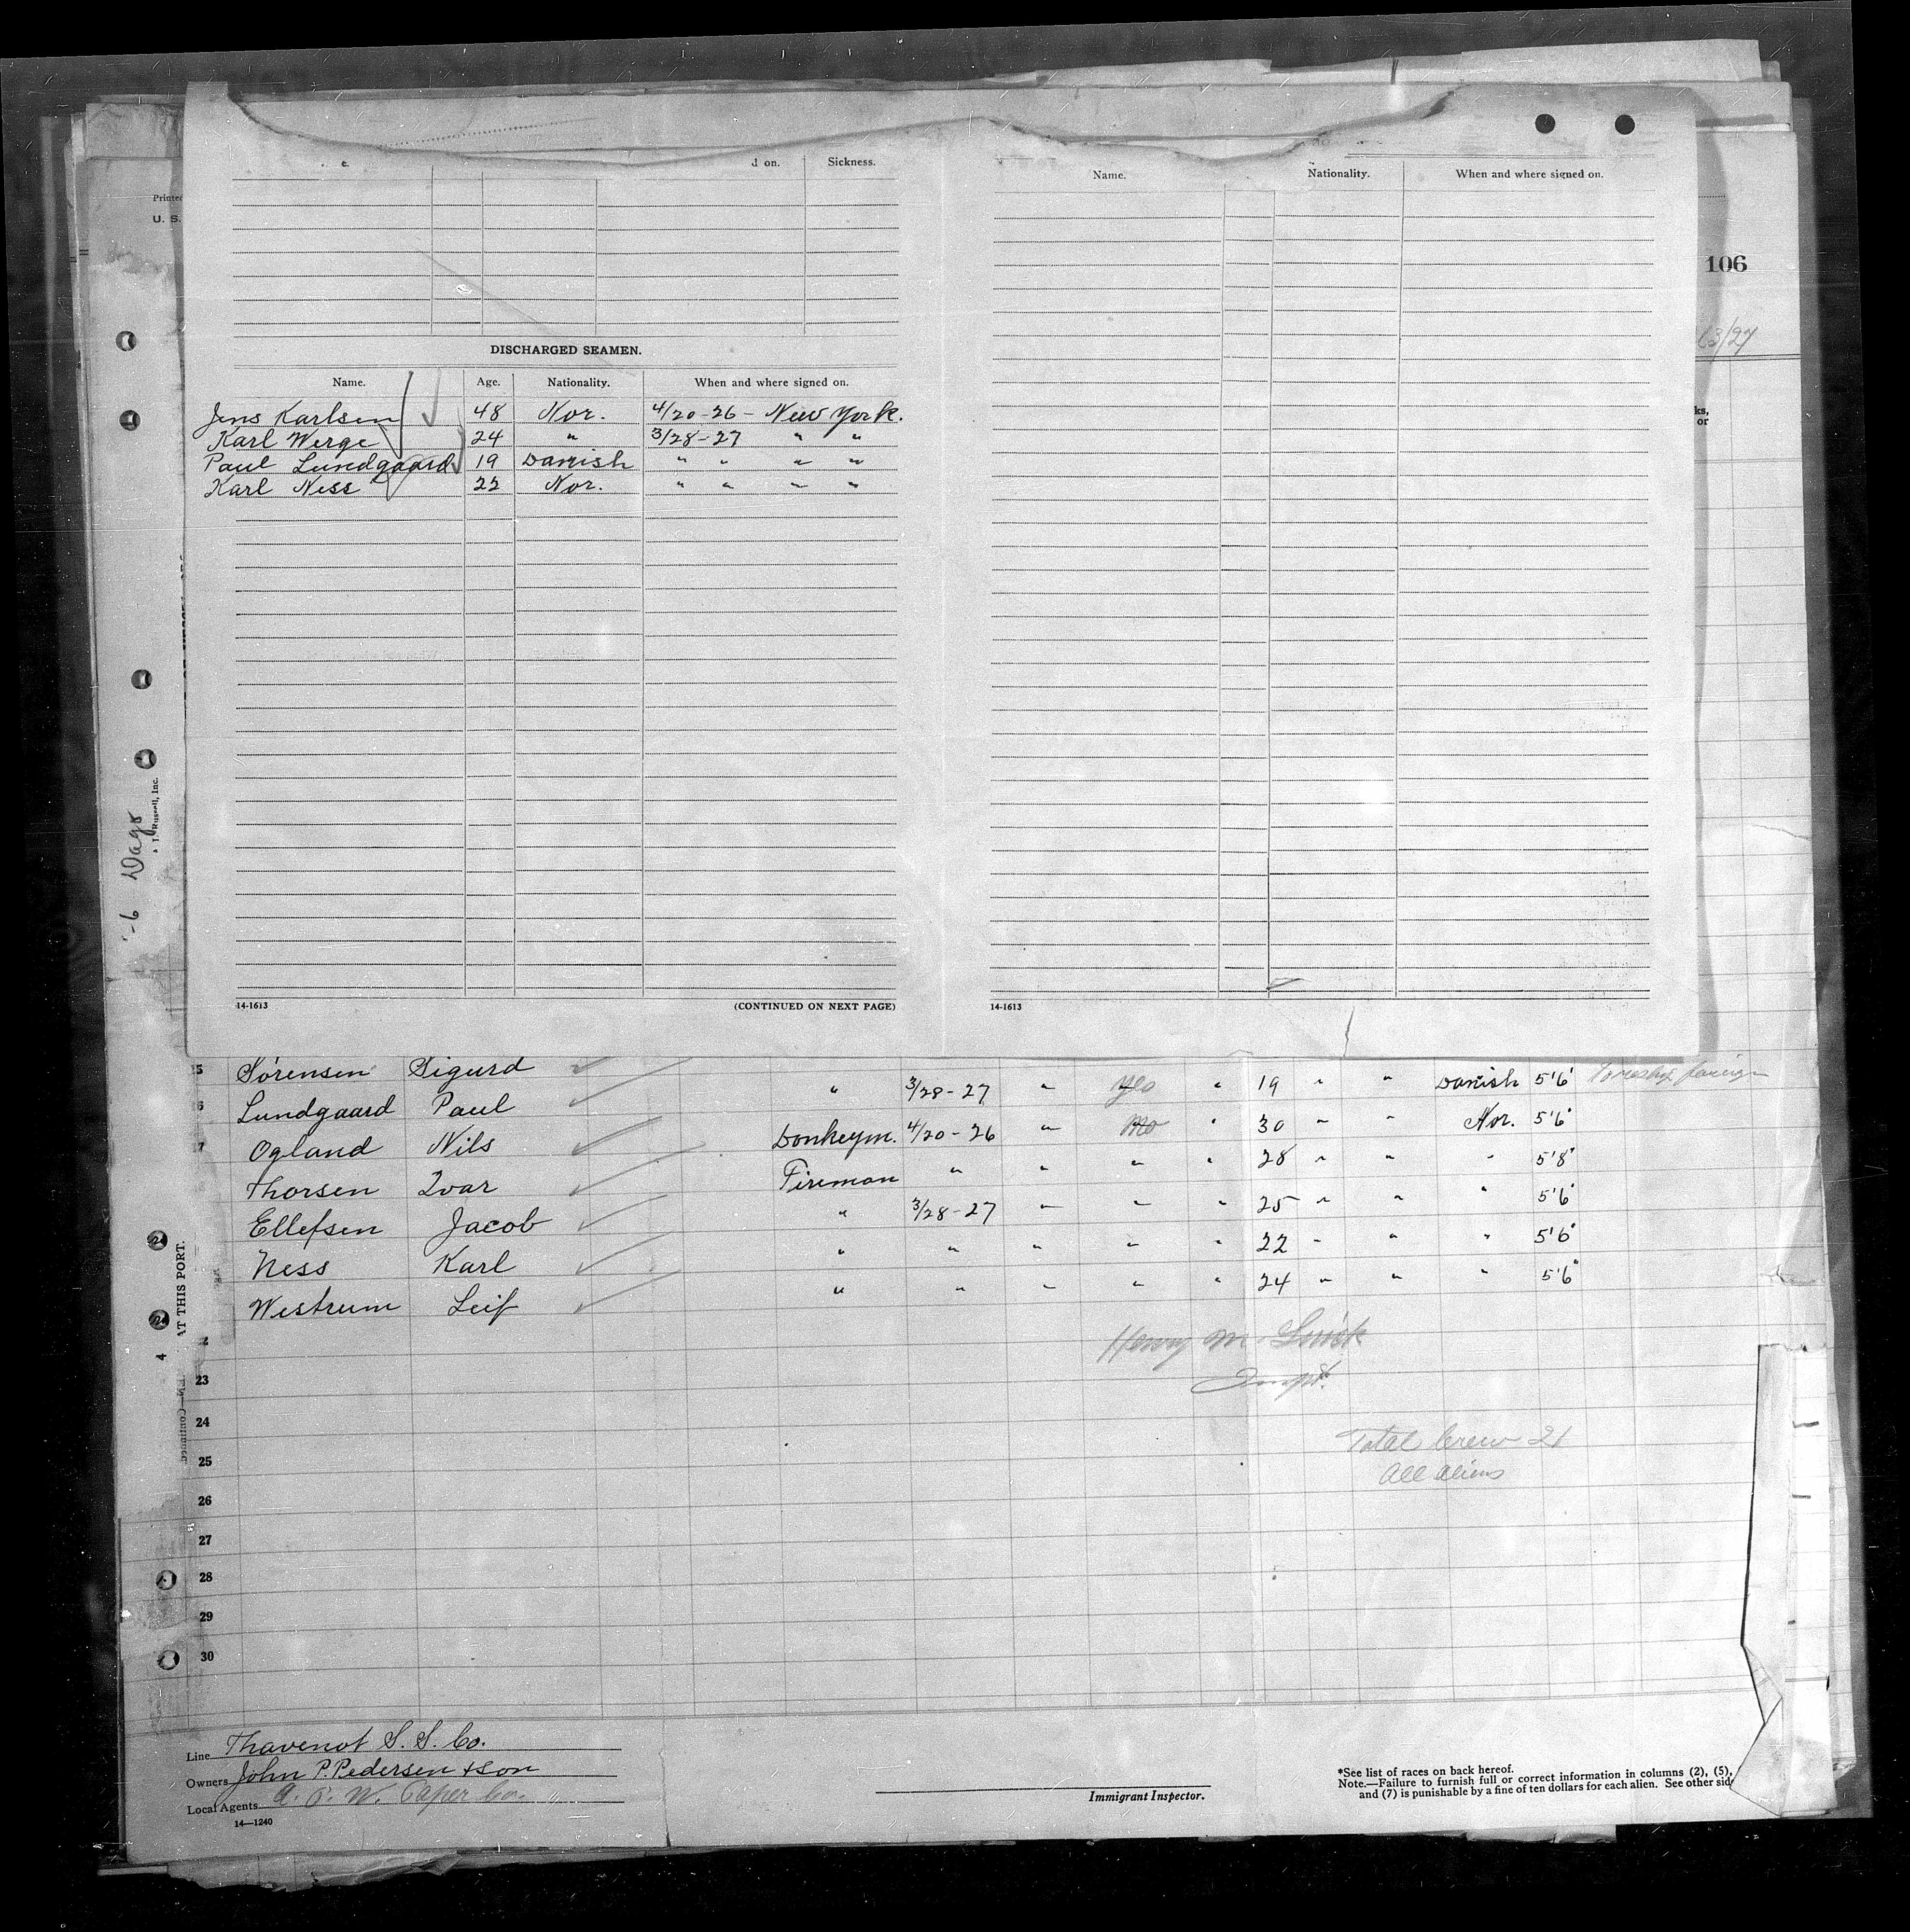 Printed
U. S.
e.
d on.
Sickness.
Name.
Nationality.
When and where signed on.
106
13/27
DISCHARGED SEAMEN.
Name. Age. Nationality. When and where signed on.
Jens Karlsen 48 Nor. 4/20-26 - New York.
Karl Werge 24 " 3/28-27 " "
Paul Lundgaard 19 Danish " " " "
Karl Ness 22 Nor. " " " "
ks,
or
J. Russell, Inc.
-6 Dago
14-1613
(CONTINUED ON NEXT PAGE)
14-1613
5 Sørensen Sigurd
6 Lundgaard Paul " 3/28-27 " yes " 19 " " Danish 5'6"
7 Ogland Nils Donkeym. 4/20-26 " no " 30 " " Nor. 5'6"
Thorsen Ivar Fireman " " " " 28 " " " 5'8"
Ellefsen Jacob " 3/28-27 " " " 25 " " " 5'6"
Ness Karl " " " " " 22 " " " 5'6"
Westrum Leif " " " " " 24 " " " 5'6"
2
Henry M.
Inspt.
23
24
Total Crew 21
25
All Aliens
26
27
28
29
30
AT THIS PORT.
4
Line Thavenot S. S. Co.
Owners John P. Pedersen & Son
Local Agents
14—1240
Immigrant Inspector.
*See list of races on back hereof.
Note.—Failure to furnish full or correct information in columns (2), (5),
and (7) is punishable by a fine of ten dollars for each alien. See other sid